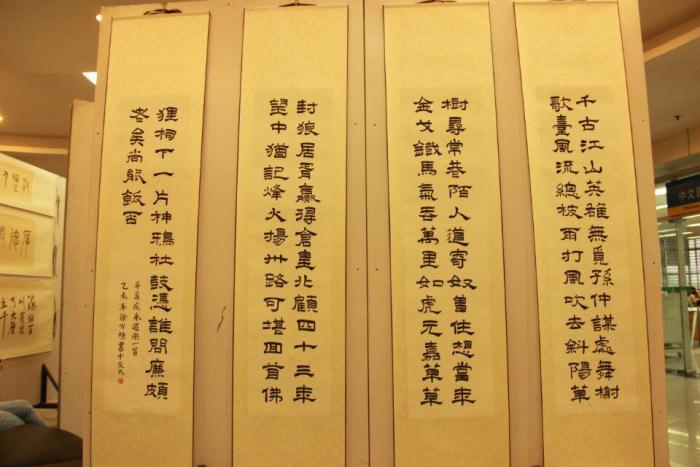 千古江山英雄無覓孫仲謀處舞榭
歌臺風流總被雨打風吹去斜陽草
樹尋常巷陌人道寄奴曾住想當年
金戈鐵馬氣吞萬里如虎元嘉草草
封狼居胥贏得倉皇北顧四十三年
望中猶記烽火揚州路可堪回首佛
狸祠下一片神鴉社鼓憑誰問廉頗
老矣尚能飯否
辛棄疾永遇樂一首
乙未年徐方書于交大
中文